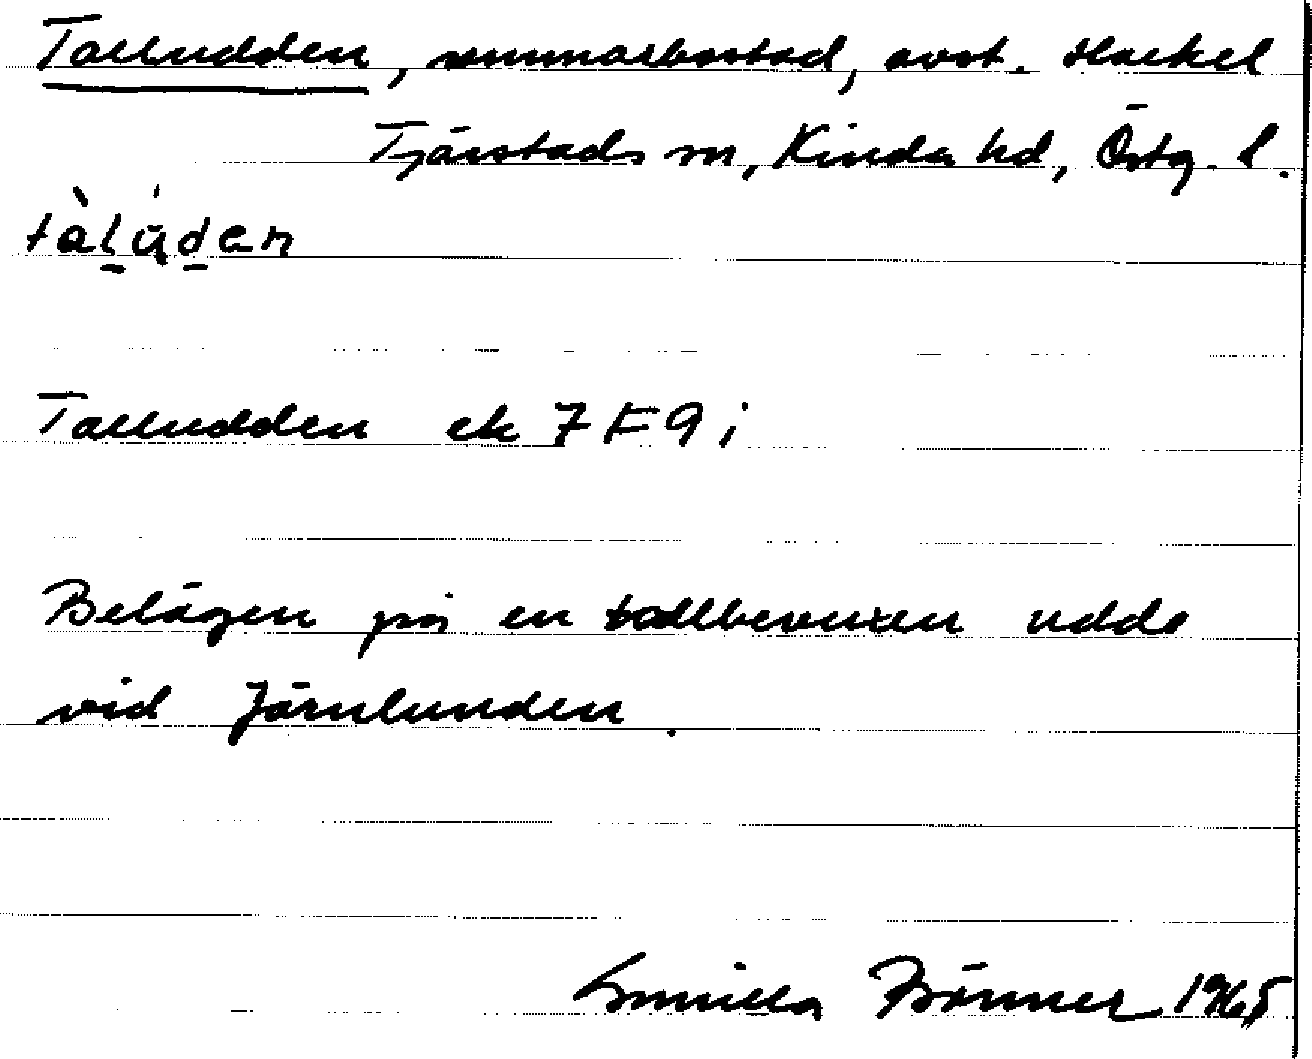 Talludden, sommarbostad, avst. Hackel
Tjärstads sn, Kinda hd, Östg. l.
tàlúden
Talludden ek 7F9i
Belägen på en tallbevuxen udde
vid Järnlunden.
Gunilla Bönner 1965